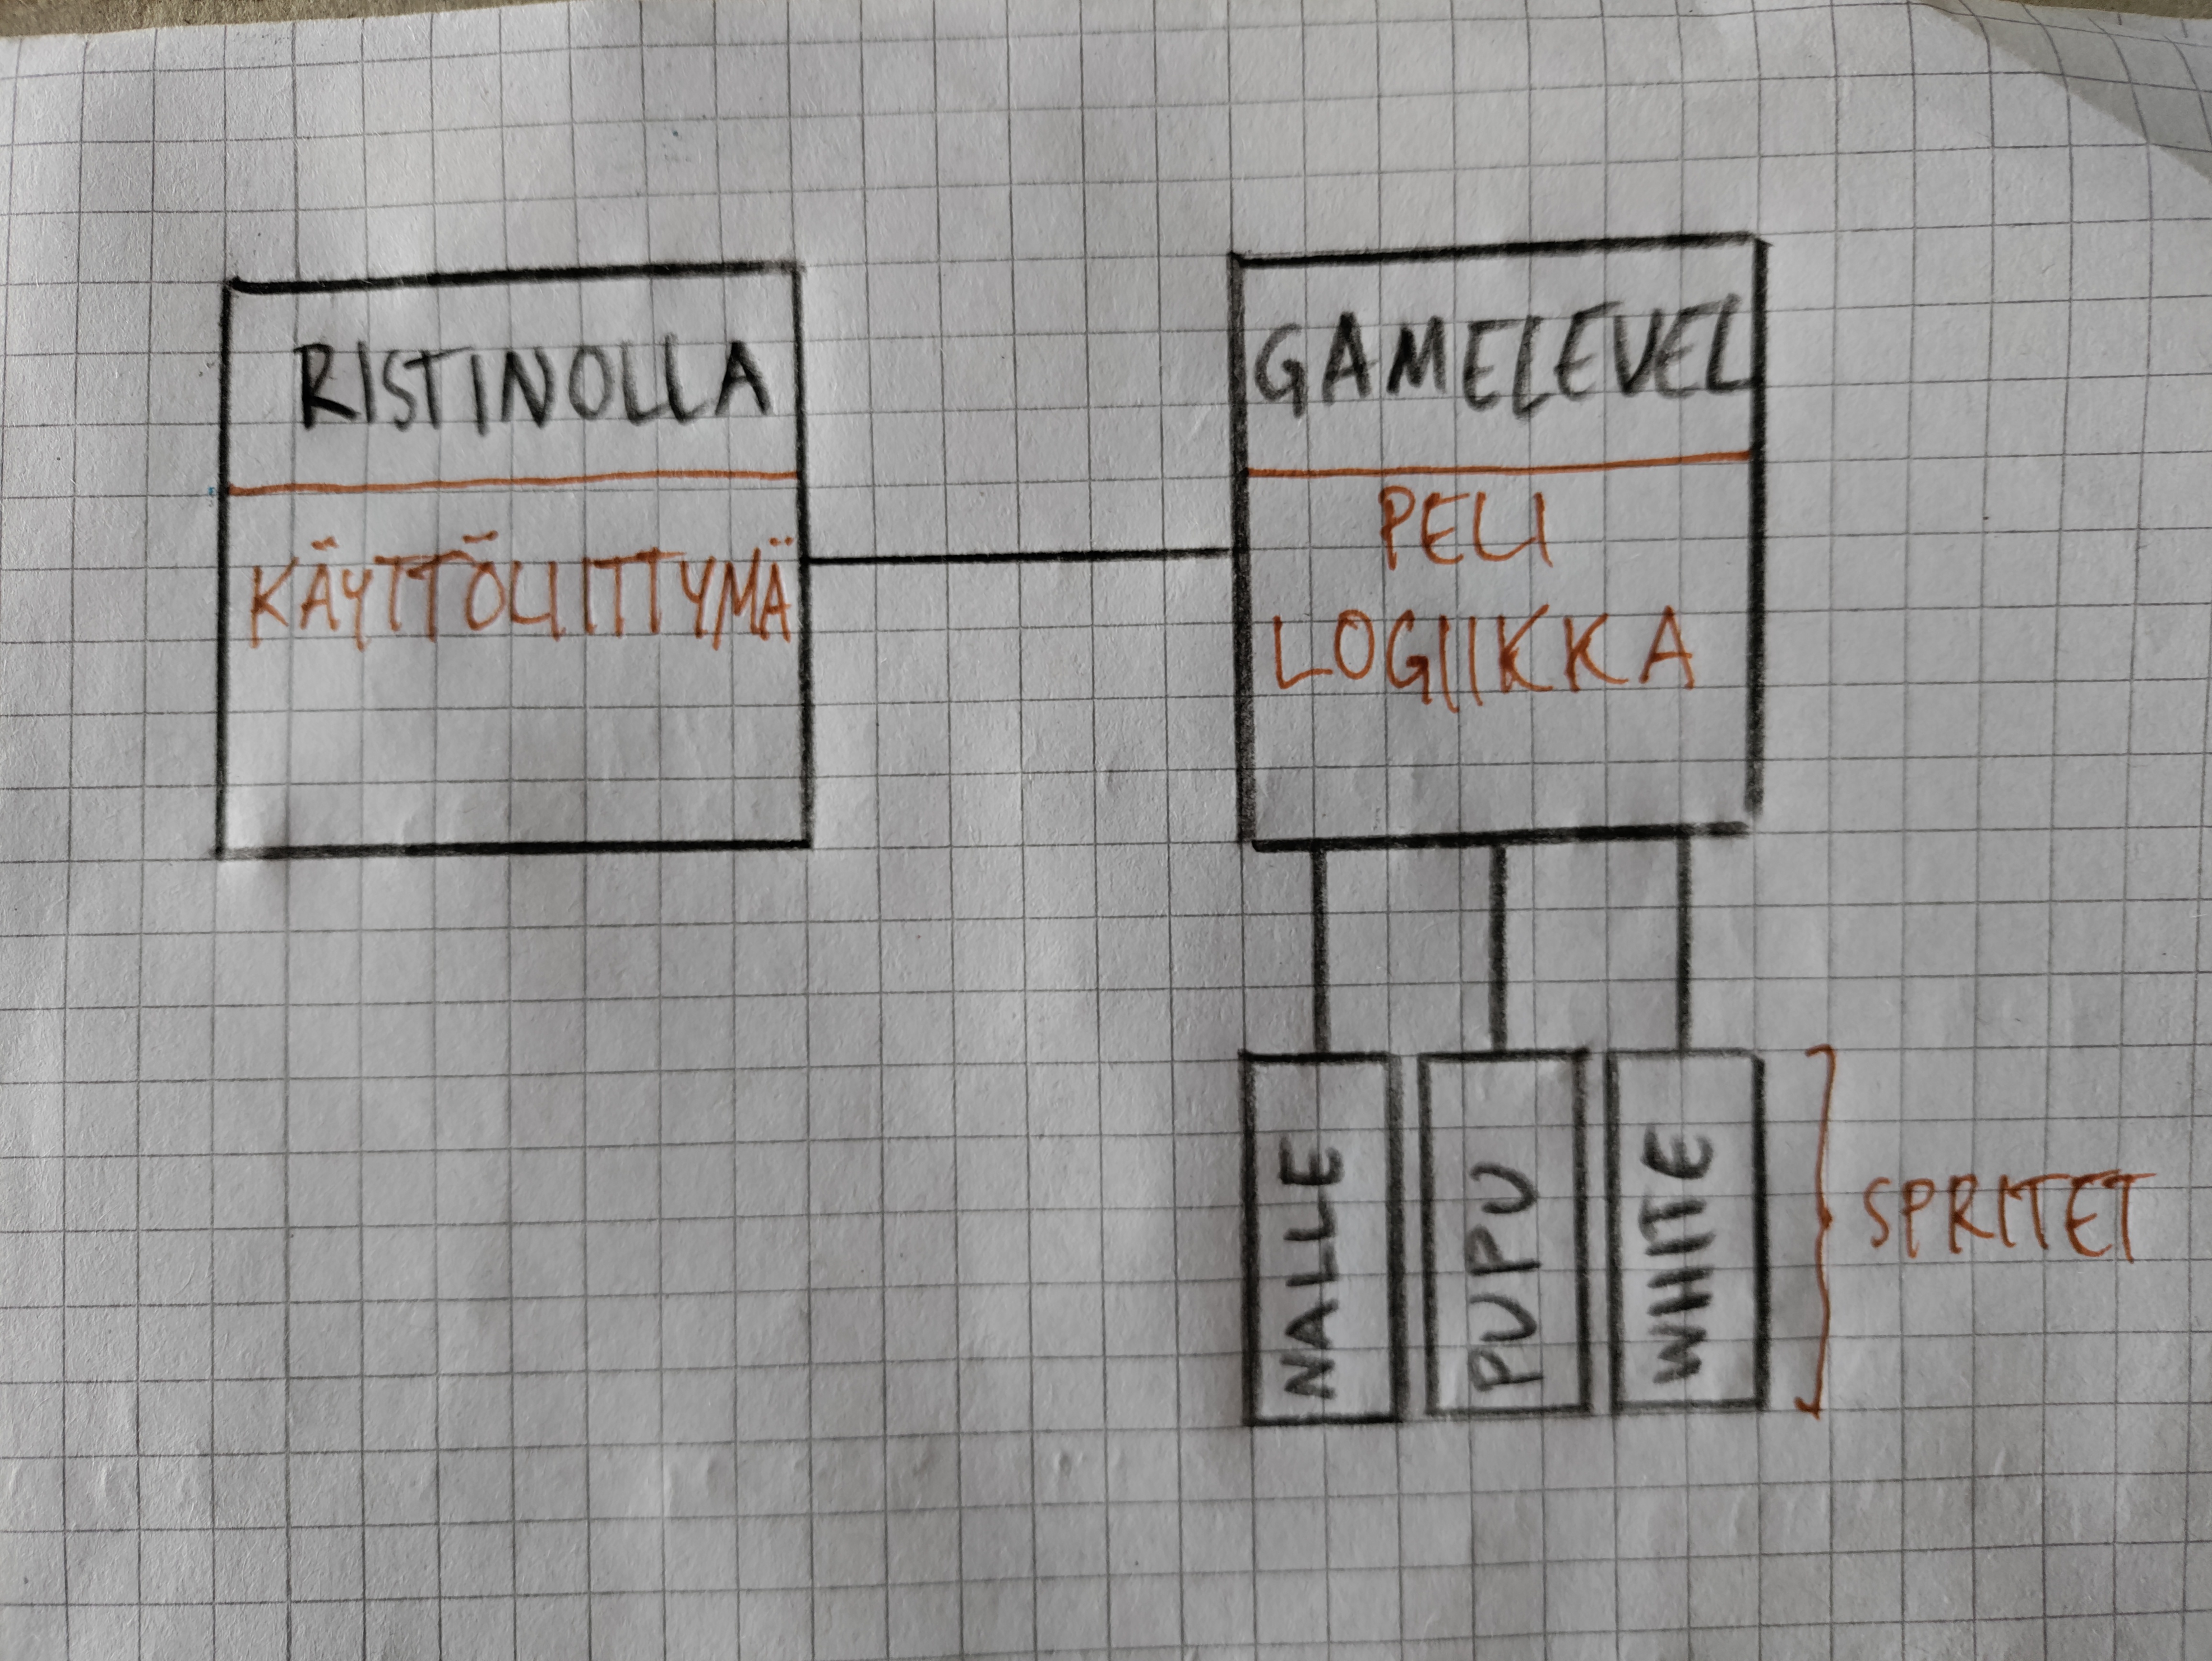 RISTINOLLA
KÄYTTÖLIITTYMÄ
GAMELEVEL
PELI
LOGIIKKA
NALLE
PUPU
WHITE
SPRITET